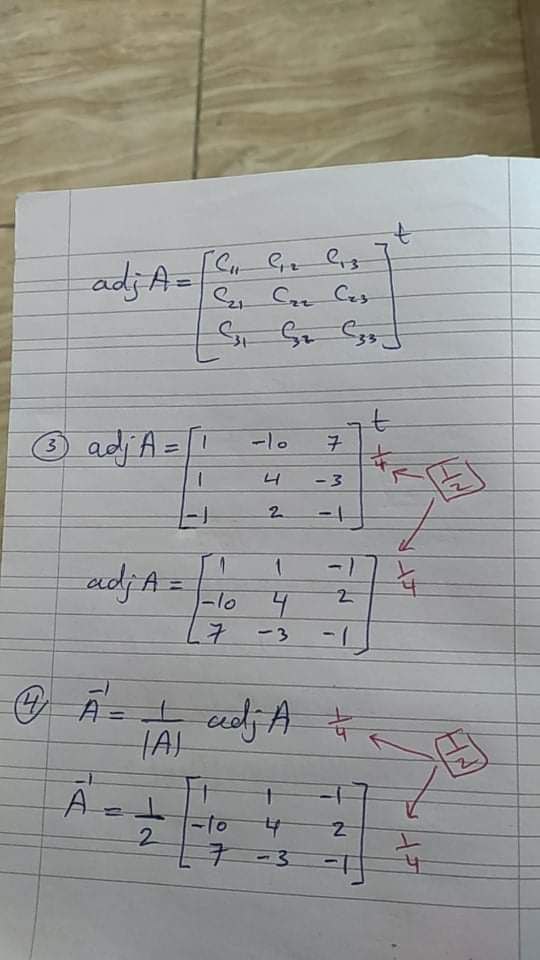 adj A = [ C₁₁ C₁₂ C₁₃ ]ᵗ
C₂₁ C₂₂ C₂₃
C₃₁ C₃₂ C₃₃
③ adj A = [ 1 -10 7 ]ᵗ 1/4 1/2
1 4 -3
-1 2 -1
adj A = [ 1 1 -1 ] 1/4
-10 4 2
7 -3 -1
④ A⁻¹ = 1/|A| adj A 1/4 1/2
A⁻¹ = 1/2 [ 1 1 -1 ] 1/4
-10 4 2
7 -3 -1